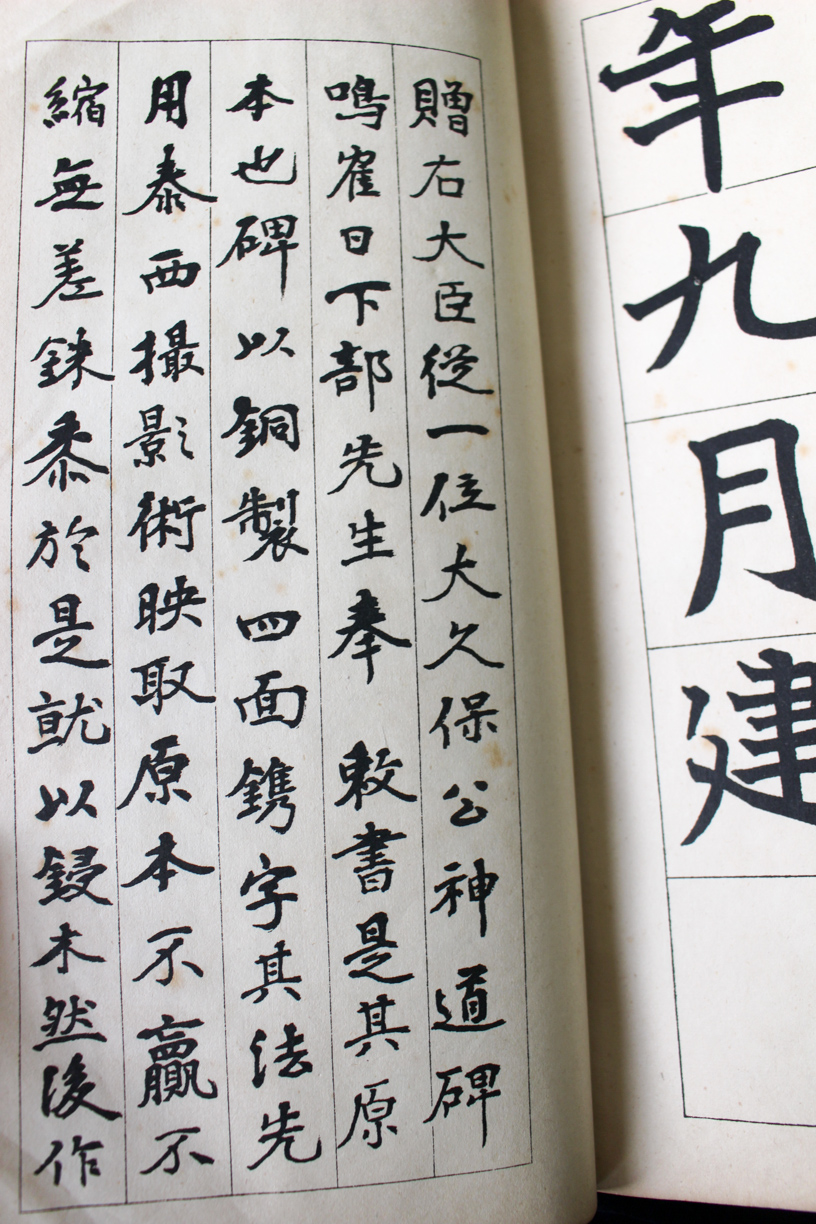 年九月建
贈右大臣從一位大久保公神道碑
鳴崔日下部先生奉 敕書是其原
本也碑以銅製四面鐫字其法先
用泰西撮影術映取原本不贏不
縮無差銖黍於是就以鋟木然後作